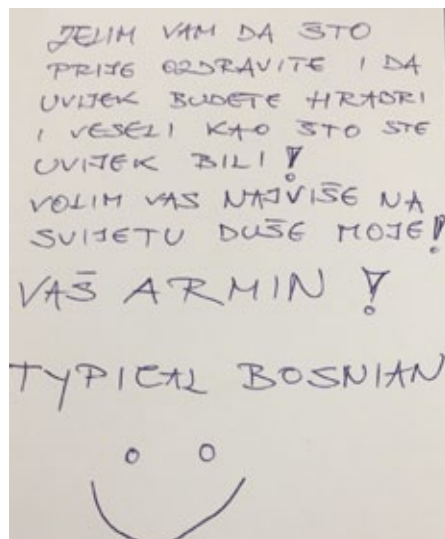 ŽELIM VAM DA ŠTO
PRIJE OZDRAVITE I DA
UVIJEK BUDETE HRABRI
I VESELI KAO ŠTO STE
UVIJEK BILI!
VOLIM VAS NAJVIŠE NA
SVIJETU DUŠE MOJE!
VAŠ ARMIN!
TYPICAL BOSNIAN